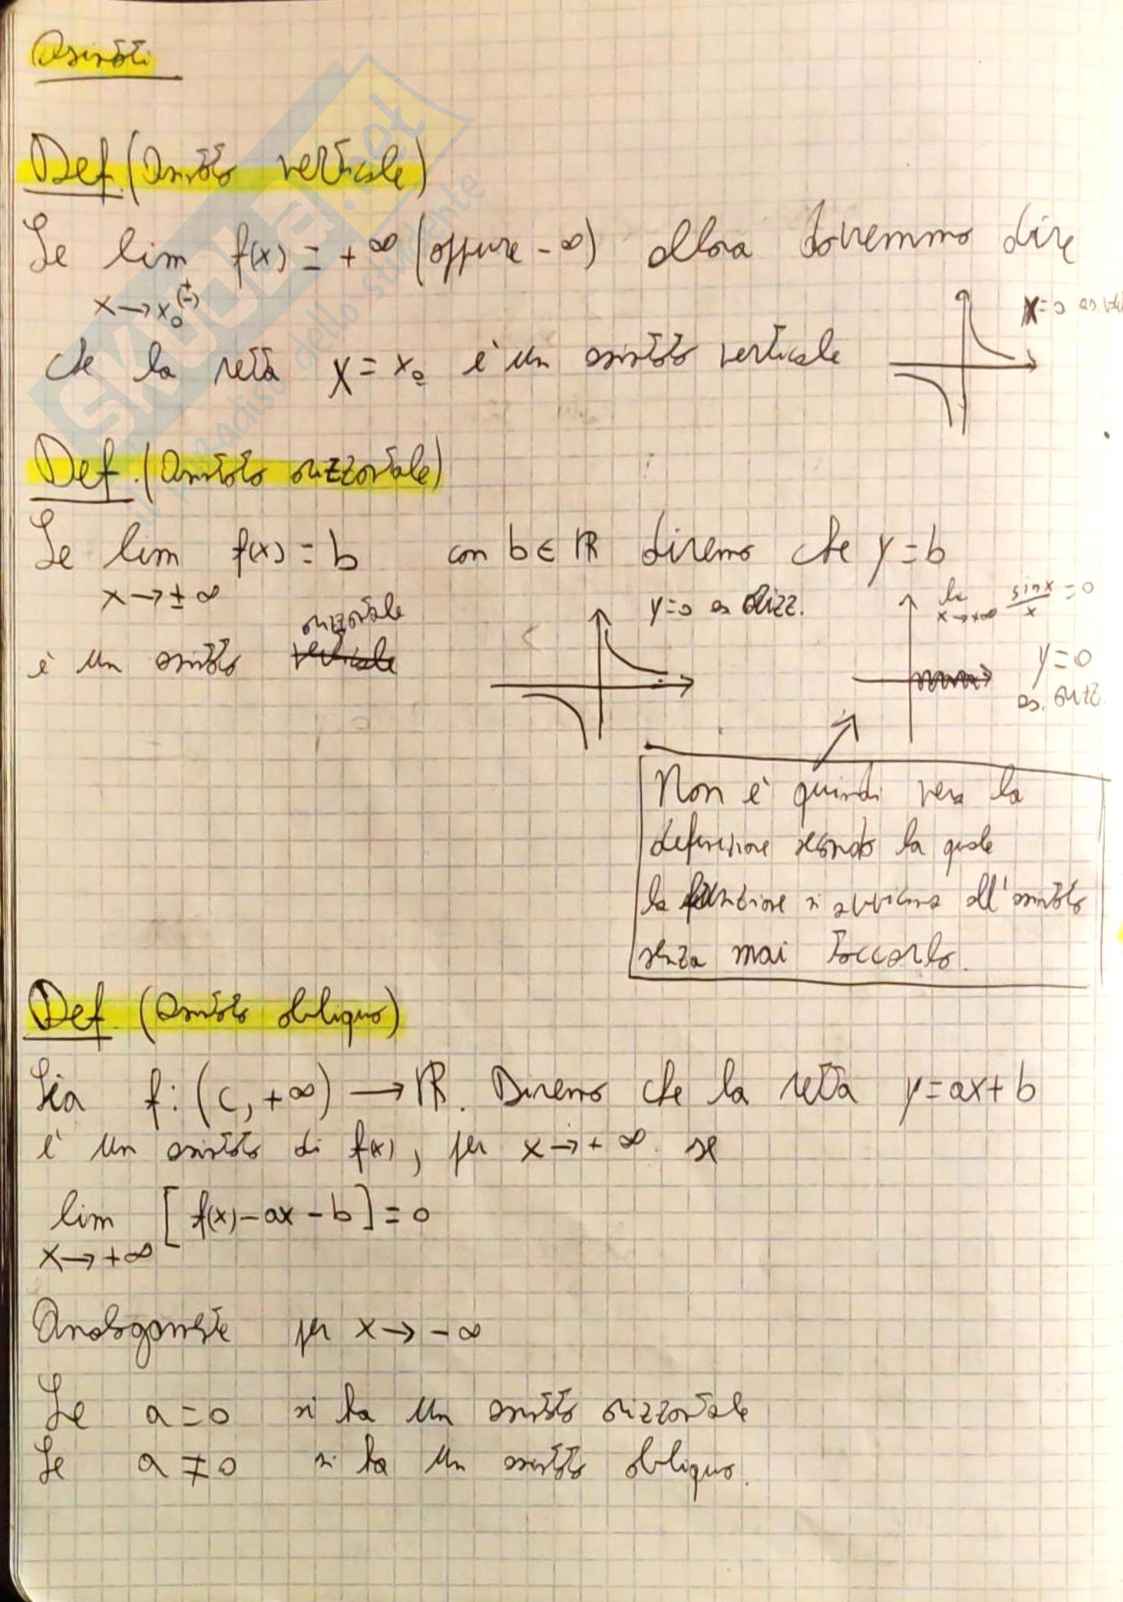 Asintoti
Def. (Asintoto verticale)
Se lim f(x) = +∞ (oppure -∞) allora dovremmo dire
x→x₀⁽⁺⁻⁾
x=0 as. ve
che la retta x = x₀ è un asintoto verticale
Def. (Asintoto orizzontale)
Se lim f(x) = b con b ∈ ℝ diremo che y = b
x→±∞
orizzontale
è un asintoto verticale
y=0 as orizz.
lim sinx/x = 0
x→+∞
y=0
as. orizz.
Non è quindi vera la
definizione secondo la quale
la funzione si avvicina all'asintoto
senza mai toccarlo.
Def. (Asintoto obliquo)
Sia f: (c, +∞) → ℝ. Diremo che la retta y=ax+b
è un asintoto di f(x), per x→+∞ se
lim [f(x)-ax-b]=0
x→+∞
Analogamente per x→-∞
Se a=0 si ha un asintoto orizzontale
Se a≠0 si ha un asintoto obliquo.
SKUOLA.net